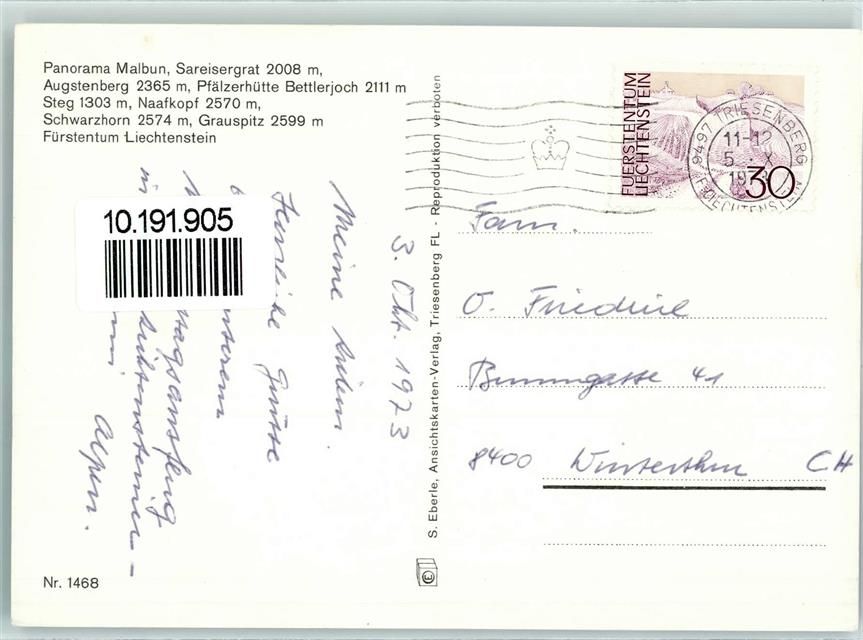 Panorama Malbun, Sareisergrat 2008 m,
Augstenberg 2365 m, Pfälzerhütte Bettlerjoch 2111 m
Steg 1303 m, Naafkopf 2570 m,
Schwarzhorn 2574 m, Grauspitz 2599 m
Fürstentum Liechtenstein
10.191.905
3. Okt. 1973
Meine Lieben.
Herzliche Grüsse
unserem
tagsausflug
Liechtensteiner-
Alpen.
Nr. 1468
S. Eberle, Ansichtskarten-Verlag, Triesenberg FL - Reproduktion verboten
FUERSTENTUM
LIECHTENSTEIN
30
9497 TRIESENBERG
11-12
5. X
LIECHTENSTEIN
Fam.
O.
41
8400 Winterthur CH